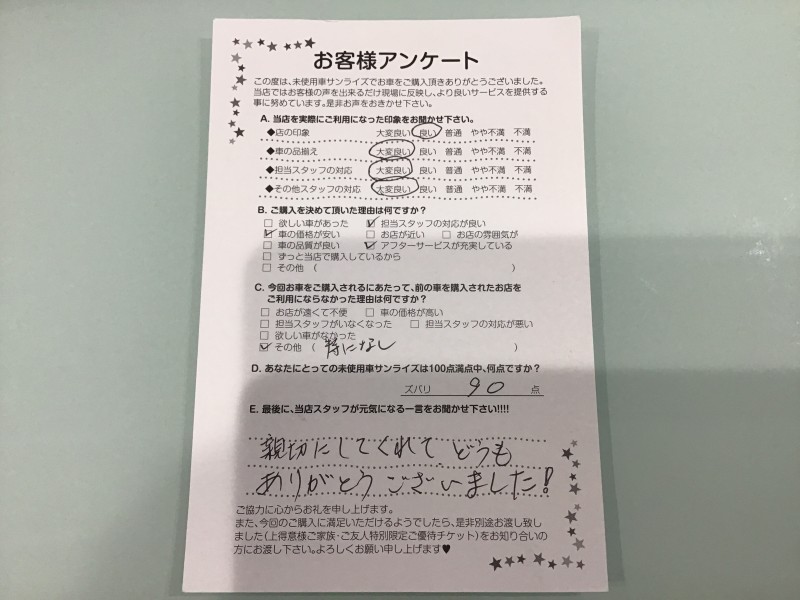 お客様アンケート
この度は、未使用車サンライズでお車をご購入頂きありがとうございました。
当店ではお客様の声を出来るだけ現場に反映し、より良いサービスを提供する
事に努めています。是非お声をおきかせ下さい。
A. 当店を実際にご利用になった印象をお聞かせ下さい。
◆店の印象 大変良い 良い 普通 やや不満 不満
◆車の品揃え 大変良い 良い 普通 やや不満 不満
◆担当スタッフの対応 大変良い 良い 普通 やや不満 不満
◆その他スタッフの対応 大変良い 良い 普通 やや不満 不満
B. ご購入を決めて頂いた理由は何ですか?
□ 欲しい車があった ☑ 担当スタッフの対応が良い
☑ 車の価格が安い □ お店が近い □ お店の雰囲気が
□ 車の品質が良い ☑ アフターサービスが充実している
□ ずっと当店で購入しているから
□ その他 ( )
C. 今回お車をご購入されるにあたって、前の車を購入されたお店を
ご利用にならなかった理由は何ですか?
□ お店が遠くて不便 □ 車の価格が高い
□ 担当スタッフがいなくなった □ 担当スタッフの対応が悪い
□ 欲しい車がなかった
☑ その他 ( 特になし )
D. あなたにとっての未使用車サンライズは100点満点中、何点ですか?
ズバリ 90 点
E. 最後に、当店スタッフが元気になる一言をお聞かせ下さい!!!!
親切にしてくれて、どうも
ありがとうございました!
ご協力に心からお礼を申し上げます。
また、今回のご購入に満足いただけるようでしたら、是非別途お渡し致し
ました(上得意様ご家族・ご友人特別限定ご優待チケット)をお知り合いの
方にお渡し下さい。よろしくお願い申し上げます♥